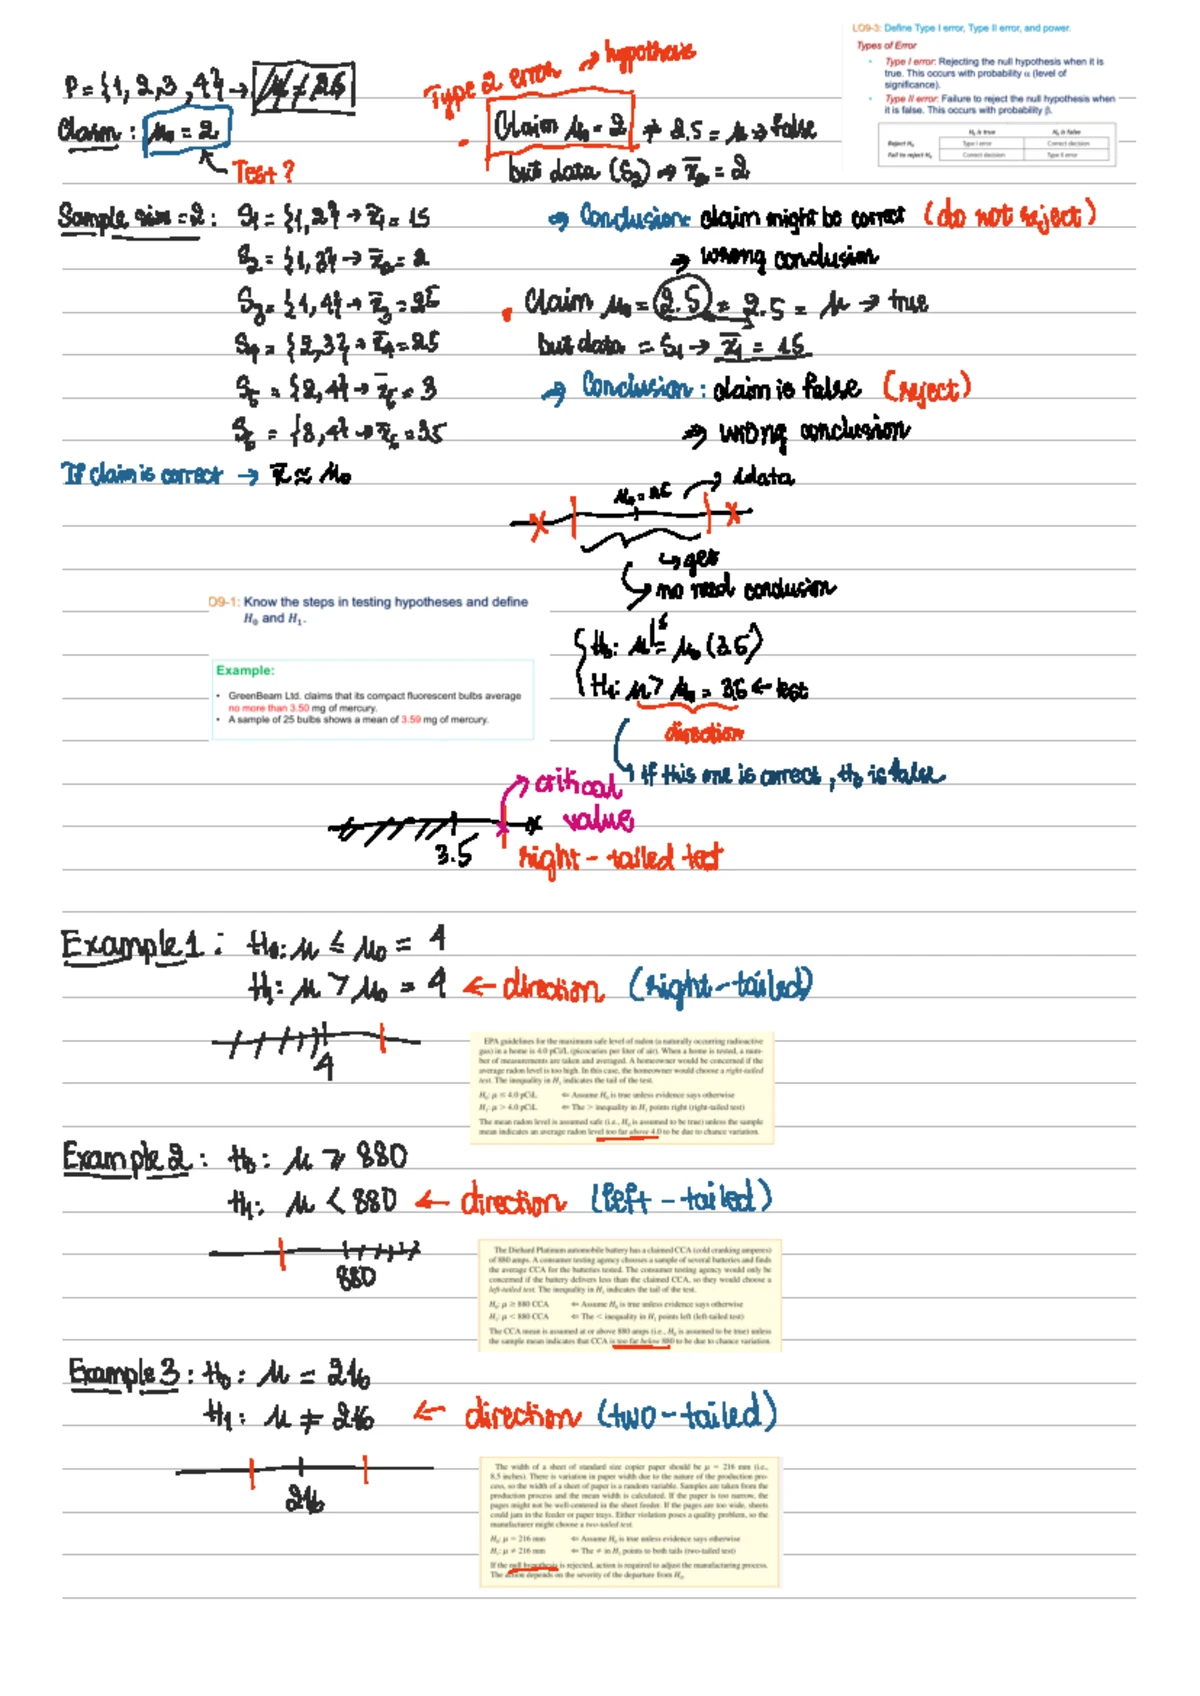 P = {1, 2, 3, 4} → μ = 2.5
Claim : μ₀ = 2
Test ?
Sample size = 2 : S₁ = {1, 2} → x̄₁ = 1.5
S₂ = {1, 3} → x̄₂ = 2
S₃ = {1, 4} → x̄₃ = 2.5
S₄ = {2, 3} → x̄₄ = 2.5
S₅ = {2, 4} → x̄₅ = 3
S₆ = {3, 4} → x̄₆ = 3.5
If claim is correct → x̄ ≈ μ₀
Type 2 error → hypothesis
Claim μ₀ = 2 ≠ 2.5 = μ → false
but data (S₂) → x̄₂ = 2
⇒ Conclusion: claim might be correct (do not reject)
→ wrong conclusion
Claim μ₀ = 2.5 = 2.5 = μ → true
but data = S₁ → x̄₁ = 1.5
⇒ Conclusion : claim is false (reject)
⇒ wrong conclusion
LO9-3: Define Type I error, Type II error, and power.
Types of Error
• Type I error: Rejecting the null hypothesis when it is
true. This occurs with probability α (level of
significance).
• Type II error: Failure to reject the null hypothesis when
it is false. This occurs with probability β.
H₀ is true H₀ is false
Reject H₀ Type I error Correct decision
Fail to reject H₀ Correct decision Type II error
→ data
no need conclusion
O9-1: Know the steps in testing hypotheses and define
H₀ and H₁.
Example:
• GreenBeam Ltd. claims that its compact fluorescent bulbs average
no more than 3.50 mg of mercury.
• A sample of 25 bulbs shows a mean of 3.59 mg of mercury.
H₀: μ ≤ μ₀ (3.5)
H₁: μ > μ₀ = 3.5 ← test
direction
If this one is correct, H₀ is false
critical
value
3.5
right-tailed test
Example 1 : H₀: μ ≤ μ₀ = 4
H₁: μ > μ₀ = 4 ← direction (right-tailed)
4
EPA guidelines for the maximum safe level of radon (a naturally occurring radioactive
gas) in a home is 4.0 pCi/L (picocuries per liter of air). When a home is tested, a num-
ber of measurements are taken and averaged. A homeowner would be concerned if the
average radon level is too high. In this case, the homeowner would choose a right-tailed
test. The inequality in H₁ indicates the tail of the test.
H₀: μ ≤ 4.0 pCi/L ⇐ Assume H₀ is true unless evidence says otherwise
H₁: μ > 4.0 pCi/L ⇐ The > inequality in H₁ points right (right-tailed test)
The mean radon level is assumed safe (i.e., H₀ is assumed to be true) unless the sample
mean indicates an average radon level too far above 4.0 to be due to chance variation.
Example 2 : H₀ : μ ≥ 880
H₁: μ < 880 ← direction (left-tailed)
880
The Diehard Platinum automobile battery has a claimed CCA (cold cranking amperes)
of 880 amps. A consumer testing agency chooses a sample of several batteries and finds
the average CCA for the batteries tested. The consumer testing agency would only be
concerned if the battery delivers less than the claimed CCA, so they would choose a
left-tailed test. The inequality in H₁ indicates the tail of the test.
H₀: μ ≥ 880 CCA ⇐ Assume H₀ is true unless evidence says otherwise
H₁: μ < 880 CCA ⇐ The < inequality in H₁ points left (left-tailed test)
The CCA mean is assumed at or above 880 amps (i.e., H₀ is assumed to be true) unless
the sample mean indicates that CCA is too far below 880 to be due to chance variation.
Example 3 : H₀ : μ = 216
H₁ : μ ≠ 216 ← direction (two-tailed)
216
The width of a sheet of standard size copier paper should be μ = 216 mm (i.e.,
8.5 inches). There is variation in paper width due to the nature of the production pro-
cess, so the width of a sheet of paper is a random variable. Samples are taken from the
production process and the mean width is calculated. If the paper is too narrow, the
pages might not be well-centered in the sheet feeder. If the pages are too wide, sheets
could jam in the feeder or paper trays. Either violation poses a quality problem, so the
manufacturer might choose a two-tailed test.
H₀: μ = 216 mm ⇐ Assume H₀ is true unless evidence says otherwise
H₁: μ ≠ 216 mm ⇐ The ≠ in H₁ points to both tails (two-tailed test)
If the null hypothesis is rejected, action is required to adjust the manufacturing process.
The action depends on the severity of the departure from H₀.